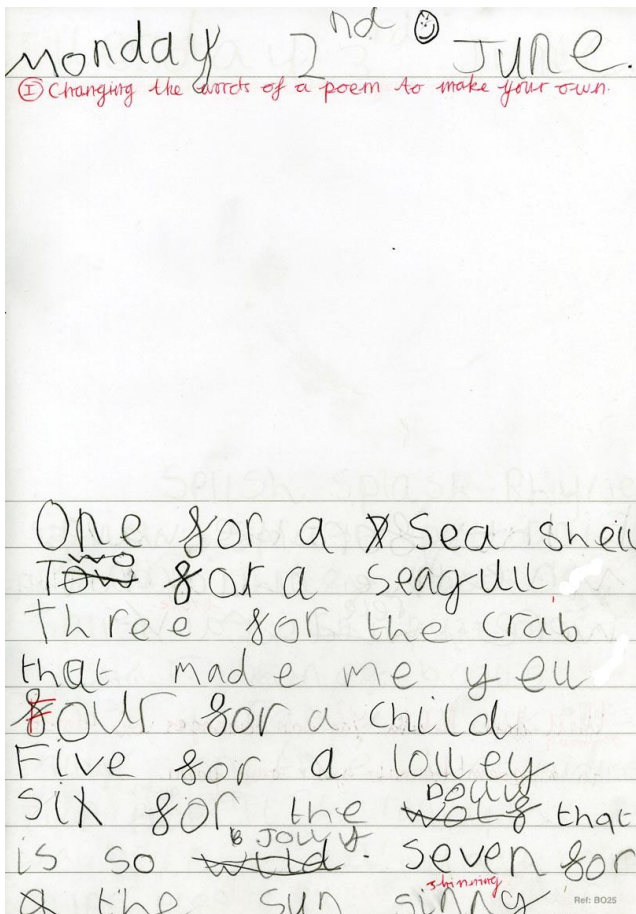 Monday 2nd June.
I Changing the words of a poem to make your own.
One for a sea shell
Two for a seagull
Three for the crab
that made me yell
Four for a child
Five for a lolley
Six for the Dolly that
is so Jolly. Seven for
the sun shinning
Ref: BO25